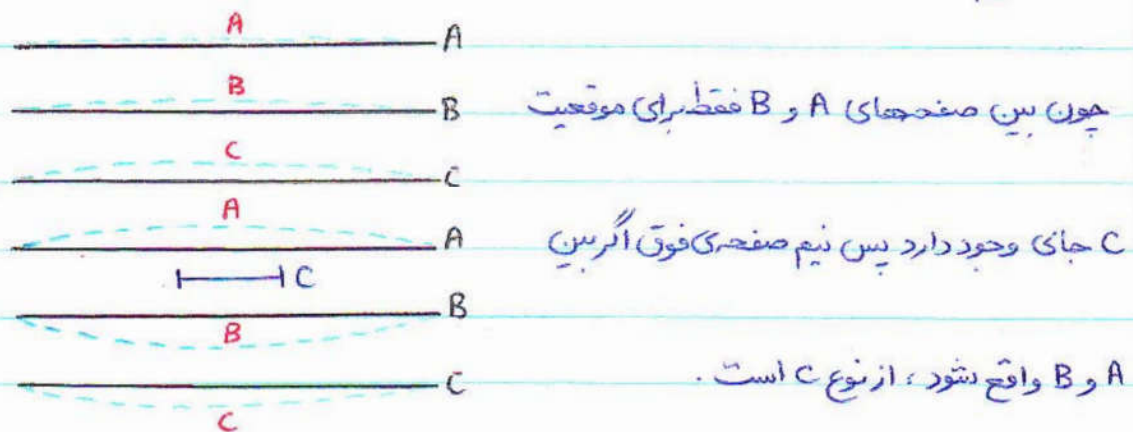 A A
B B
چون بین صفحه‌های A و B فقط برای موقعیت
C C
A A
C جای وجود دارد پس نیم صفحه‌ی فوق اگر بین
C
B
B
A و B واقع شود ، از نوع C است .
C
C